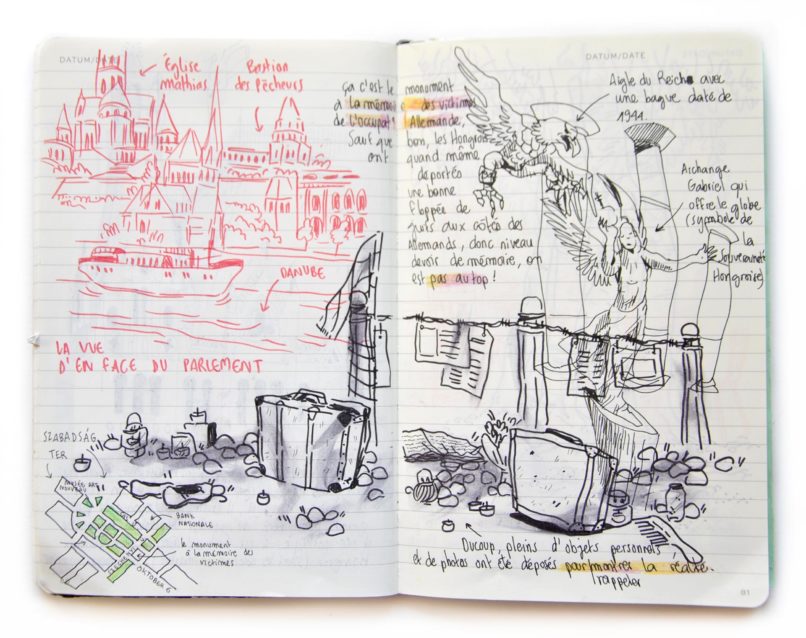 DATUM/DATE
Église
mathias
Bastion
des Pêcheurs
DANUBE
LA VUE
D'EN FACE DU PARLEMENT
SZABADSÁG
TER
MUSÉE ART
NOUVEAU
BANK
NATIONALE
le monument
à la mémoire des
victimes
OKTOBER 6
DATUM/DATE
ça c'est le monument
à la mémoire des victimes
de l'occupat° Allemande,
Sauf que bon, les Hongrois
ont quand même
déportés
une bonne
floppée de
juifs aux côtés des
Allemands, donc niveau
devoir de mémoire, on
est pas au top !
Aigle du Reich avec
une bague datée de
1944.
Archange
Gabriel qui
offre le globe
(symbole de
la
Souveraineté
Hongroise)
Ducoup, pleins d'objets personnels
et de photos ont été déposés pour montrer la réalité.
rappeler
81